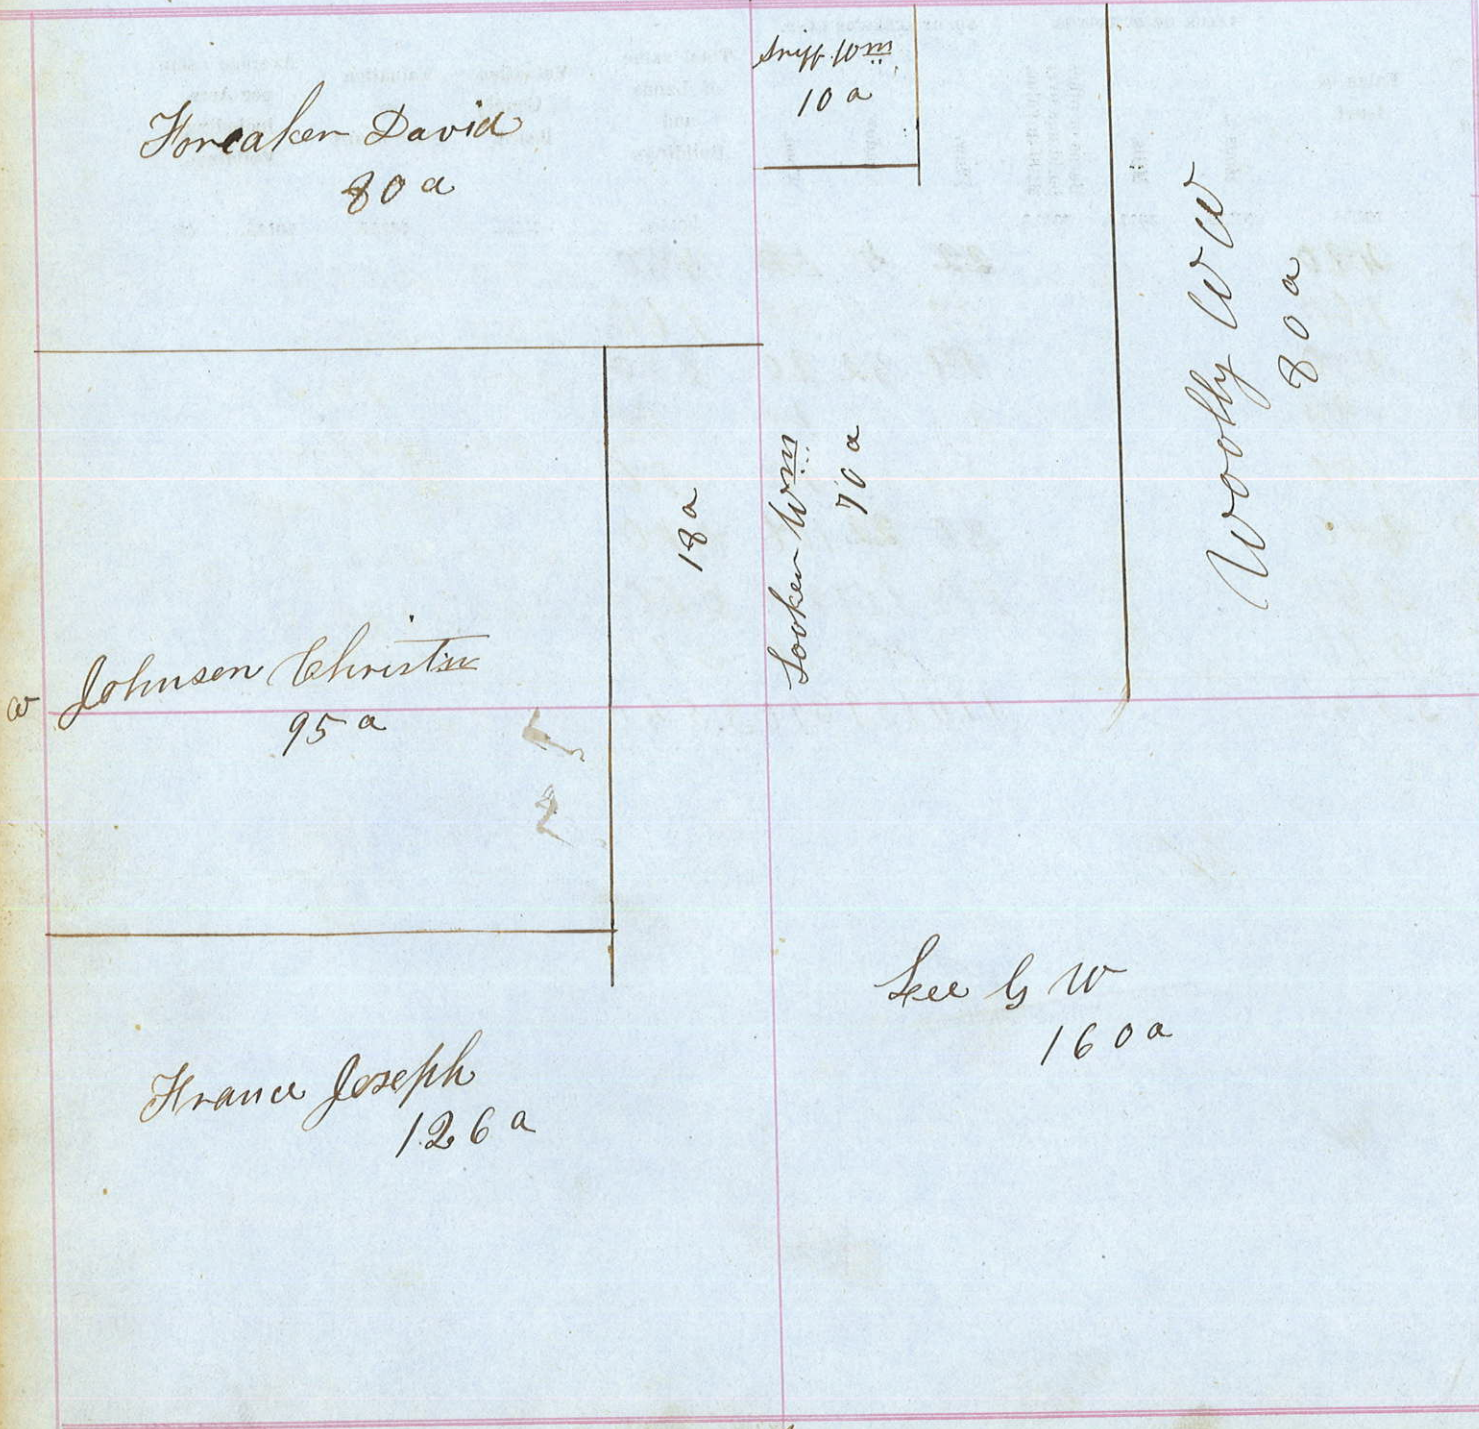 Foreaker David
80 a
Wm
10 a
Woolly W W
80 a
Looker Wm
70 a
18 a
Johnson Christn
95 a
w
Lee G W
160 a
France Joseph
126 a